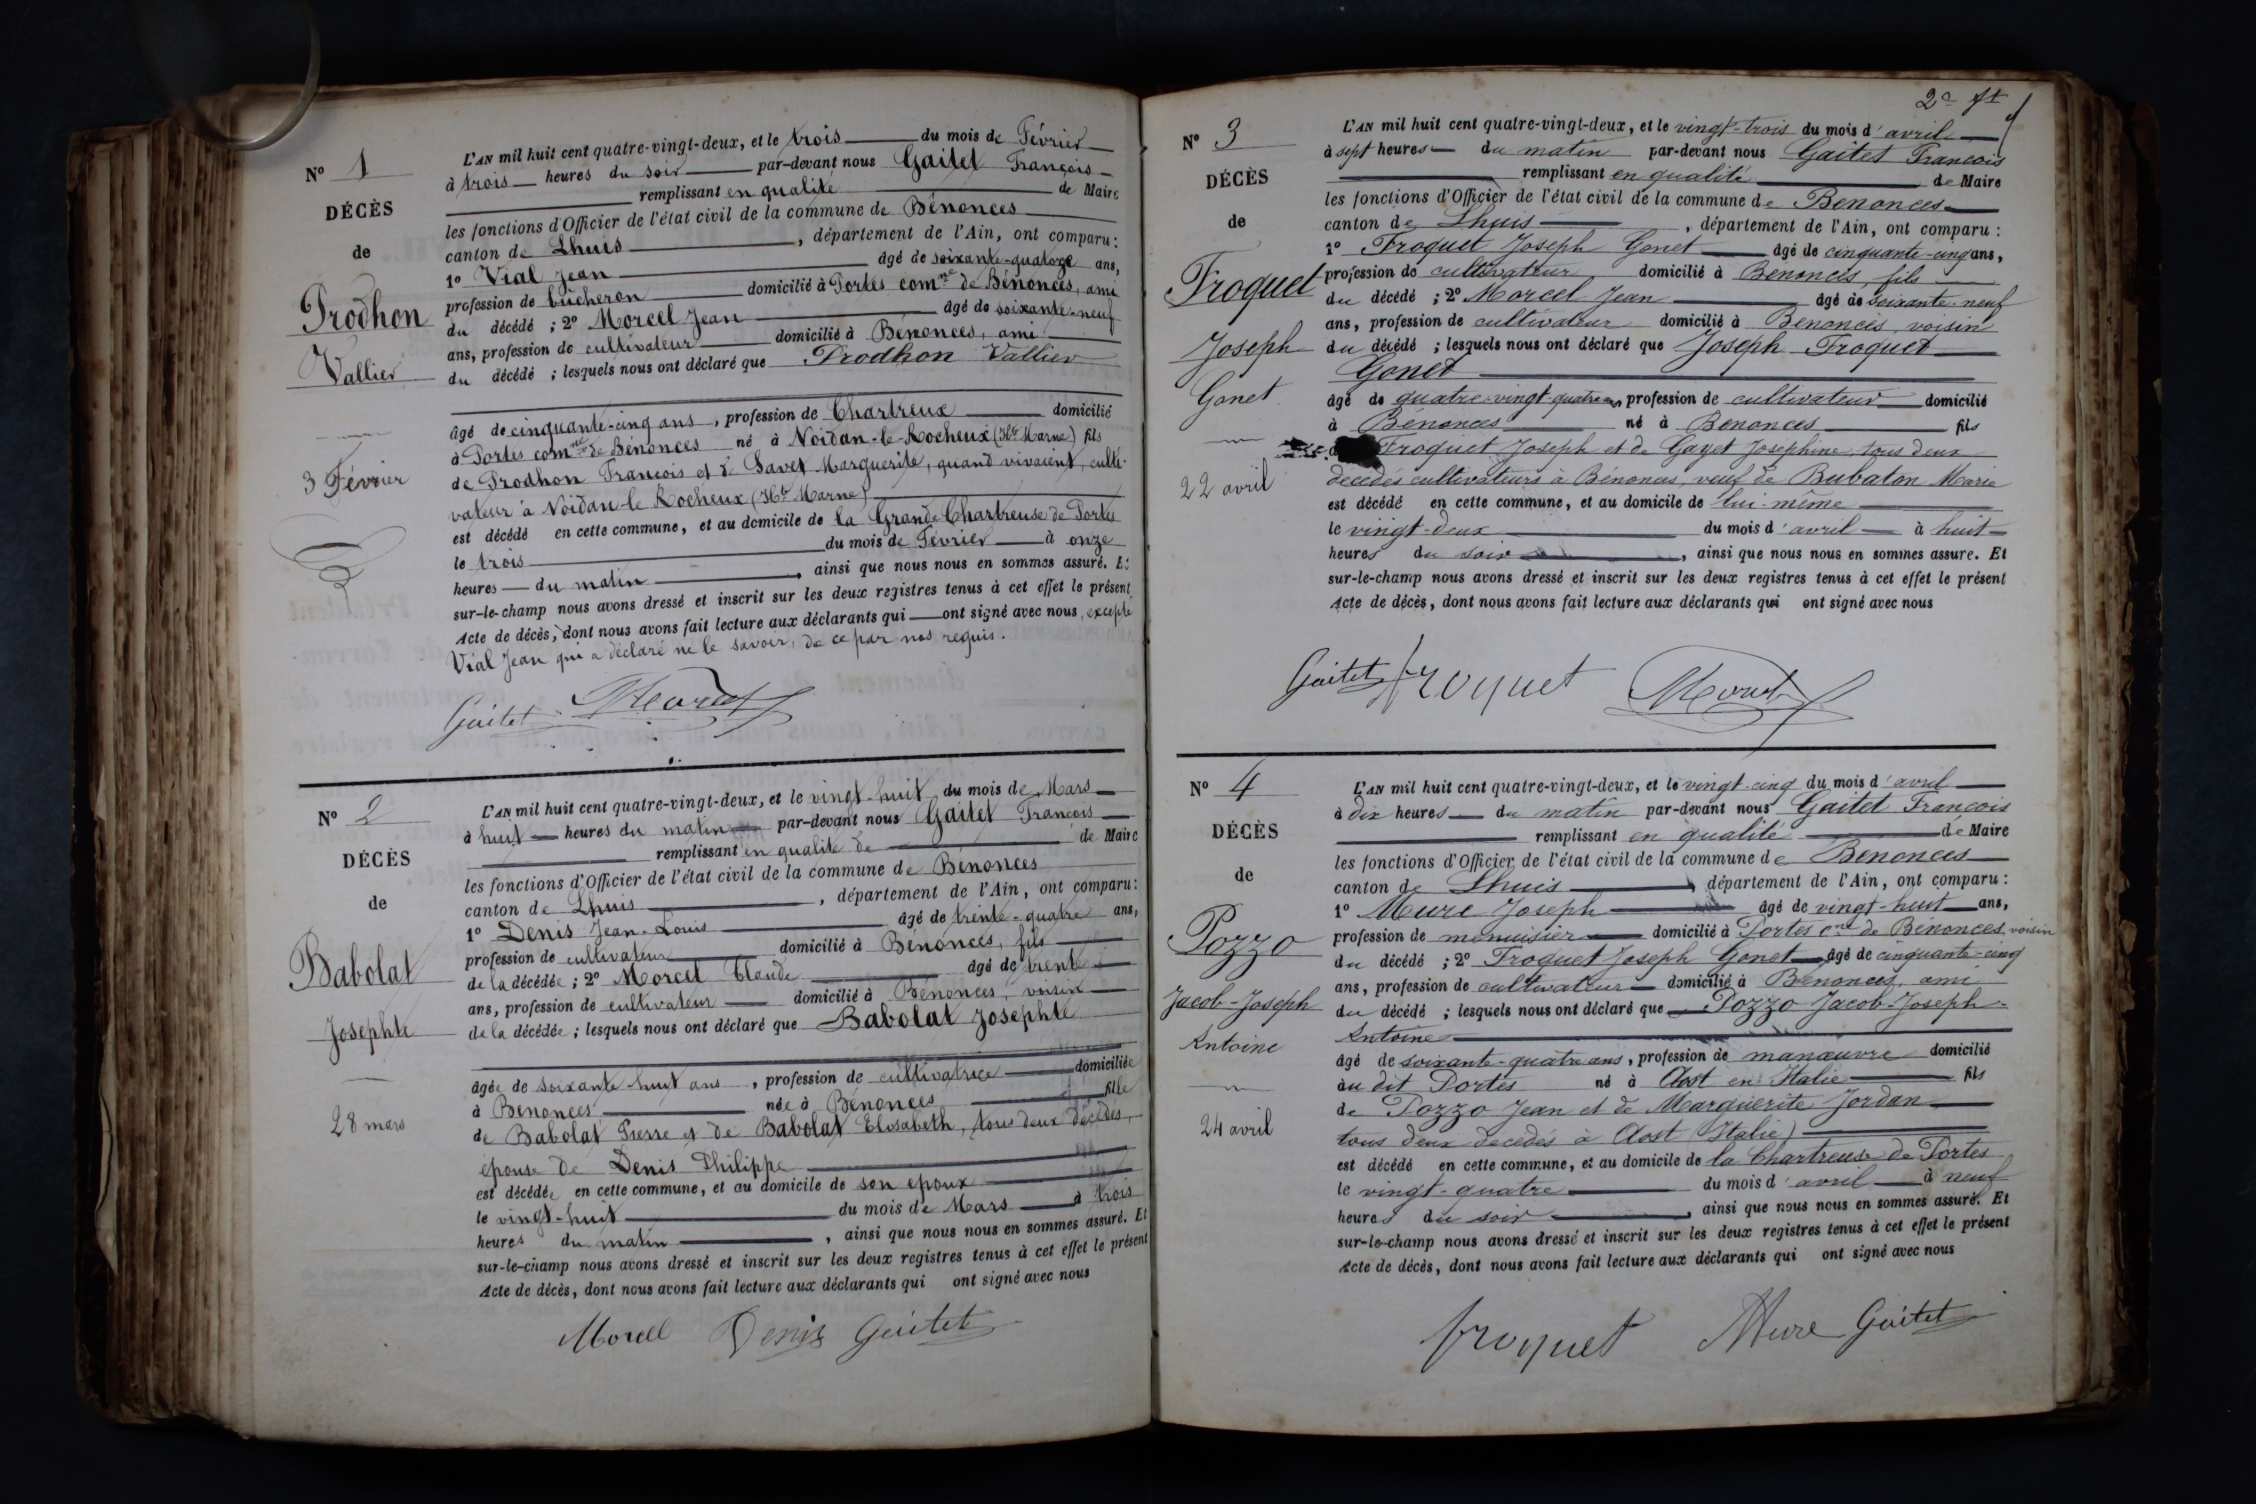 N° 1
DÉCÈS
de
Prodhon
Vallier
3 Février
L'AN mil huit cent quatre-vingt-deux, et le trois du mois de Février
à trois heures du soir par-devant nous Gaitet François
remplissant en qualité de Maire
les fonctions d'Officier de l'état civil de la commune de Bénonces
canton de Lhuis, département de l'Ain, ont comparu :
1° Vial Jean âgé de soixante-quatorze ans,
profession de bûcheron domicilié à Portes comne de Bénonces, ami
du décédé ; 2° Morcel Jean âgé de soixante-neuf
ans, profession de cultivateur domicilié à Bénonces, ami
du décédé ; lesquels nous ont déclaré que Prodhon Vallier
âgé de cinquante-cinq ans, profession de Chartreux domicilié
à Portes comne de Bénonces né à Noidan-le-Rocheux (Hte Marne) fils
de Prodhon François et de Savet Marguerite, quand vivaient, culti-
vateur à Noidan-le Rocheux (Hte Marne)
est décédé en cette commune, et au domicile de la Grande Chartreuse de Portes
le trois du mois de Février à onze
heures du matin, ainsi que nous nous en sommes assuré. Et
sur-le-champ nous avons dressé et inscrit sur les deux registres tenus à cet effet le présent
Acte de décès, dont nous avons fait lecture aux déclarants qui ont signé avec nous, excepté
Vial Jean qui a déclaré ne le savoir, de ce par nos requis.
Gaitet Morcel
N° 2
DÉCÈS
de
Babolat
Josephte
28 mars
L'AN mil huit cent quatre-vingt-deux, et le vingt-huit du mois de Mars
à huit heures du matin par-devant nous Gaitet François
remplissant en qualité de de Maire
les fonctions d'Officier de l'état civil de la commune de Bénonces
canton de Lhuis, département de l'Ain, ont comparu :
1° Denis Jean-Louis âgé de trente-quatre ans,
profession de cultivateur domicilié à Bénonces, fils
de la décédée ; 2° Morcel Claude âgé de trente
ans, profession de cultivateur domicilié à Bénonces, voisin
de la décédée ; lesquels nous ont déclaré que Babolat Josephte
âgée de soixante huit ans, profession de cultivatrice domiciliée
à Bénonces née à Bénonces fille
de Babolat Pierre et de Babolat Elisabeth, tous deux décédés,
épouse de Denis Philippe
est décédée en cette commune, et au domicile de son époux
le vingt-huit du mois de Mars à trois
heures du matin, ainsi que nous nous en sommes assuré. Et
sur-le-champ nous avons dressé et inscrit sur les deux registres tenus à cet effet le présent
Acte de décès, dont nous avons fait lecture aux déclarants qui ont signé avec nous
Morcel Denis Gaitet
N° 3
DÉCÈS
de
Froquet
Joseph
Gonet
22 avril
L'AN mil huit cent quatre-vingt-deux, et le vingt-trois du mois d'avril
à sept heures du matin par-devant nous Gaitet François
remplissant en qualité de Maire
les fonctions d'Officier de l'état civil de la commune de Bénonces
canton de Lhuis, département de l'Ain, ont comparu :
1° Froquet Joseph Gonet âgé de cinquante-cinq ans,
profession de cultivateur domicilié à Bénonces, fils
du décédé ; 2° Morcel Jean âgé de soixante-neuf
ans, profession de cultivateur domicilié à Bénonces, voisin
du décédé ; lesquels nous ont déclaré que Joseph Froquet
Gonet
âgé de quatre-vingt-quatre ans, profession de cultivateur domicilié
à Bénonces né à Bénonces fils
Froquet Joseph et de Gayet Joséphine, tous deux
décédés cultivateurs à Bénonces, veuf de Bubaton Marie
est décédé en cette commune, et au domicile de lui-même
le vingt-deux du mois d'avril à huit
heures du soir, ainsi que nous nous en sommes assuré. Et
sur-le-champ nous avons dressé et inscrit sur les deux registres tenus à cet effet le présent
Acte de décès, dont nous avons fait lecture aux déclarants qui ont signé avec nous
Gaitet froquet Morcel
N° 4
DÉCÈS
de
Pozzo
Jacob-Joseph
Antoine
24 avril
L'AN mil huit cent quatre-vingt-deux, et le vingt-cinq du mois d'avril
à dix heures du matin par-devant nous Gaitet François
remplissant en qualité de Maire
les fonctions d'Officier de l'état civil de la commune de Bénonces
canton de Lhuis, département de l'Ain, ont comparu :
1° Mure Joseph âgé de vingt-huit ans,
profession de menuisier domicilié à Portes cne de Bénonces, voisin
du décédé ; 2° Froquet Joseph Gonet âgé de cinquante-cinq
ans, profession de cultivateur domicilié à Bénonces, ami
du décédé ; lesquels nous ont déclaré que Pozzo Jacob-Joseph-
Antoine
âgé de soixante-quatre ans, profession de manœuvre domicilié
au dit Portes né à Aost en Italie fils
de Pozzo Jean et de Marguerite Jordan
tous deux décédés à Aost (Italie)
est décédé en cette commune, et au domicile de la Chartreuse de Portes
le vingt-quatre du mois d'avril à neuf
heures du soir, ainsi que nous nous en sommes assuré. Et
sur-le-champ nous avons dressé et inscrit sur les deux registres tenus à cet effet le présent
Acte de décès, dont nous avons fait lecture aux déclarants qui ont signé avec nous
froquet Mure Gaitet